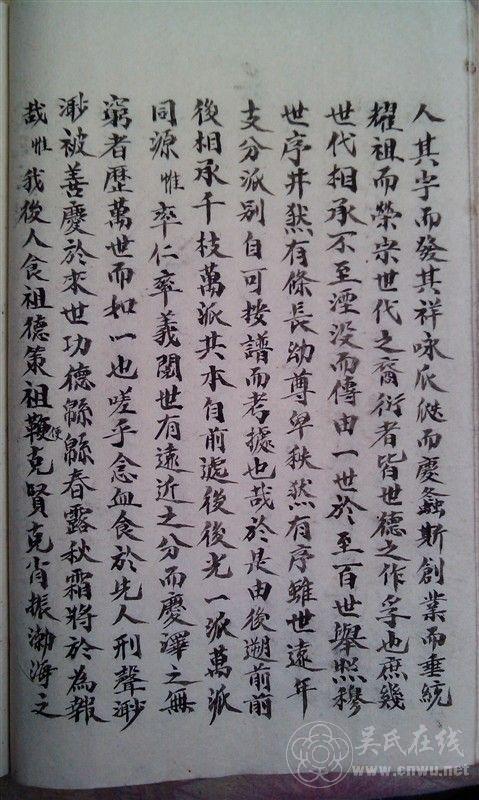 人其孚而發其祥咏瓜瓞而慶螽斯創業而垂統
耀祖而榮宗世代之裔衍者皆世德之作孚也庶幾
世代相承不至湮没而傳由一世於至百世舉照穆
世序井然有條長幼尊卑秩然有序雖世遠年
支分派别自可按譜而考據也哉於是由後遡前前
後相承千枝萬派共本自前遞後後光一派萬派
同源惟率仁率義閱世有遠近之分而慶澤之無
窮者歷萬世而如一也嗟乎念血食於先人刑聲渺
渺被善慶於來世功德綿綿春露秋霜將於為報
哉惟我後人食祖德策祖鞭使克賢克肖振渤海之
吴氏在线
www.cnwu.net